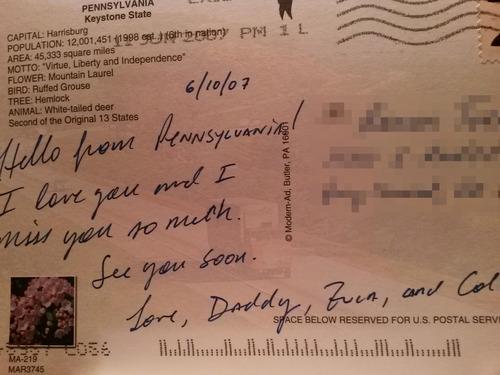 PENNSYLVANIA
Keystone State
CAPITAL: Harrisburg
POPULATION: 12,001,451 (1998 est.) (6th in nation)
AREA: 45,333 square miles
MOTTO: "Virtue, Liberty and Independence"
FLOWER: Mountain Laurel
BIRD: Ruffed Grouse
TREE: Hemlock
ANIMAL: White-tailed deer
Second of the Original 13 States
11 JUN 2007 PM 1 L
6/10/07
Hello from PENNSYLVANIA!
I love you and I
miss you so much.
See you soon.
Love, Daddy, and
© Modern-Ad, Butler, PA 16001
SPACE BELOW RESERVED FOR U.S. POSTAL SERV
MA-219
MAR3745